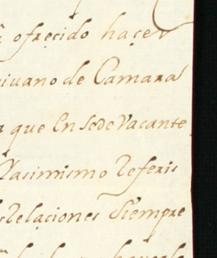 ofrecido hacer
iuano de Camara
que En sede Vacante
Vasimismo Referi
Relaciones Siempre